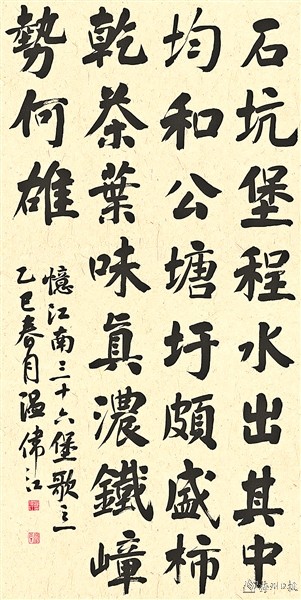 石坑堡程水出其中
均和公塘圩頗盛柿
乾茶葉味真濃鐵嶂
勢何雄
憶江南三十六堡歌之
乙巳春月温偉江
梅州日报